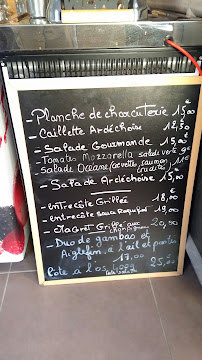 - Planche de charcuterie 15,00 €
- Caillette Ardéchoise 12,50 €
- Salade Gourmande 15,00 €
Tomates Mozzarella salade verte 9 €
- Salade Océane (crevettes, saumon 11 €
crudités)
- Salade Ardéchoise 15,00 €
- entrecôte Grillée 18,00 €
- entrecôte sauce Roquefort 19,00
- Magret Grillé aux champignons 20,00
- Duo de gambas et
Aiglefin à l'ail et
17,00
Côte à l'os 25,00